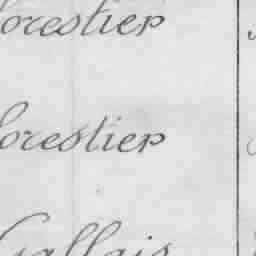 orestier
forestier
Gallais